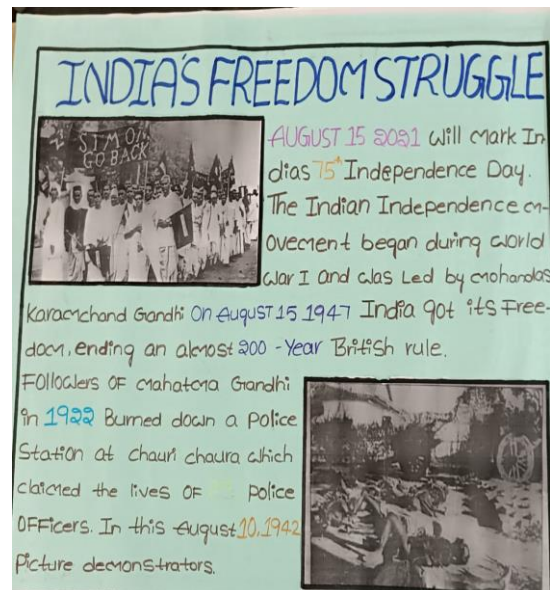 INDIA'S FREEDOM STRUGGLE
SIMON
GO BACK
AUGUST 15 2021 will mark In
dias 75th Independence Day.
The Indian Independence m-
ovement began during world
war I and was Led by mohandas
Karamchand Gandhi On August 15 1947 India got its Free-
dom, ending an almost 200 - Year British rule.
Followers OF mahatma Gandhi
in 1922 Burned down a Police
Station at chauri chaura which
claimed the lives OF Police
OFFicers. In this August 10, 1942
Picture demonstrators.